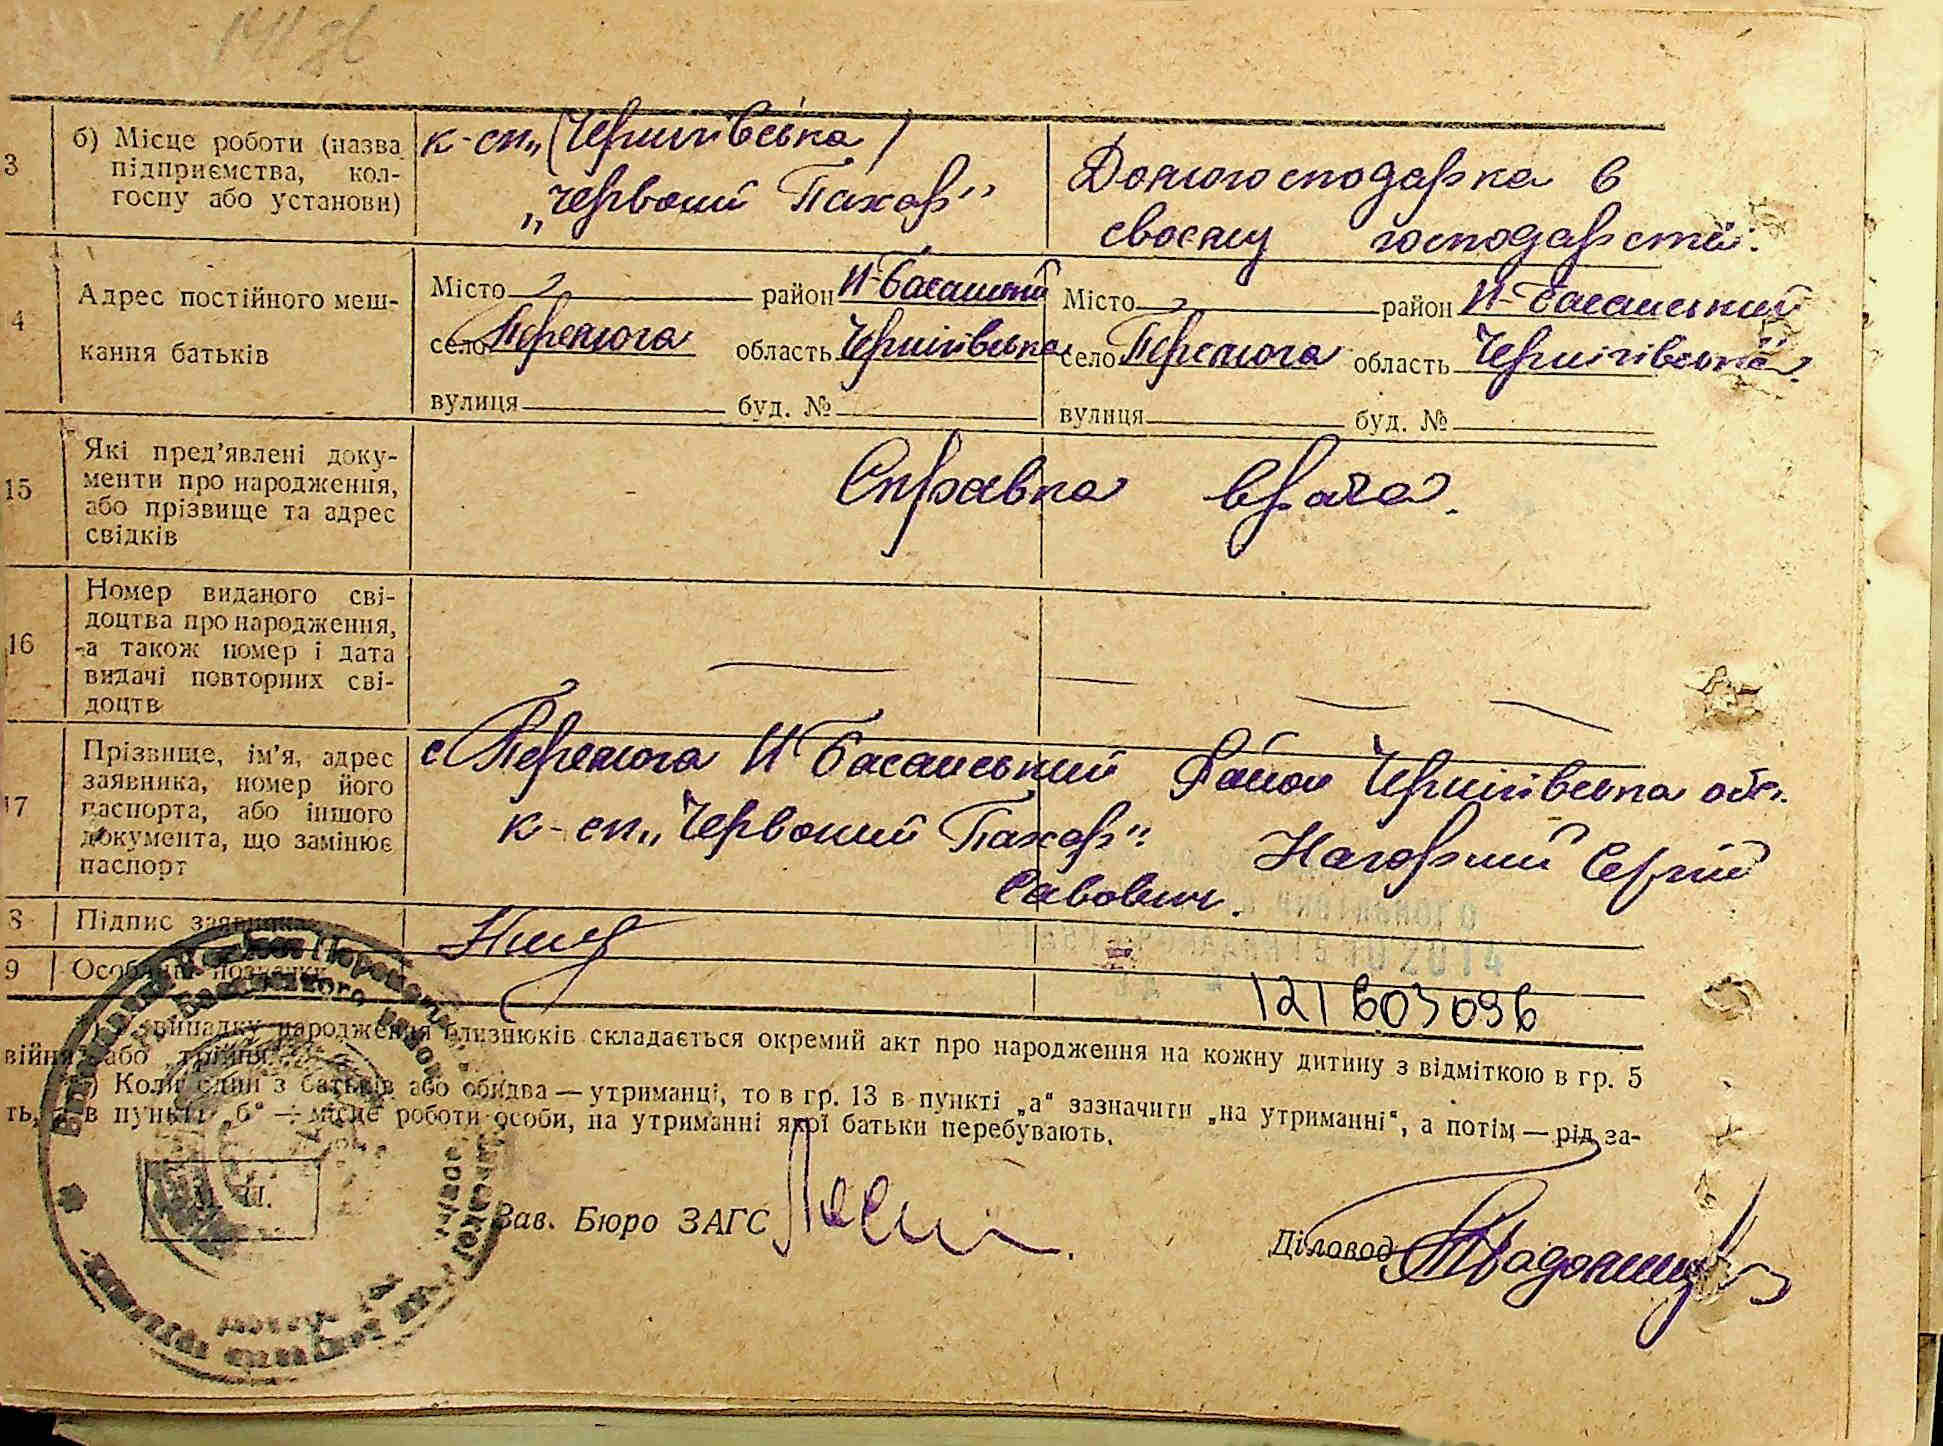 141 зв
3
б) Місце роботи (назва
підприємства, кол-
госпу або установи)
к-сп „(Чернігівська)
„Червоний Пахар"
Домогосподарка в
своєму господарстві.
4
Адрес постійного меш-
кання батьків
Місто район Н-Басанський
село Перемога область Чернігівська
вулиця буд. №
Місто район Н-Басанський
село Перемога область Чернігівська.
вулиця буд. №
15
Які пред'явлені доку-
менти про народження,
або прізвище та адрес
свідків
Справка врача.
16
Номер виданого сві-
доцтва про народження,
а також номер і дата
видачі повторних сві-
доцтв
17
Прізвище, ім'я, адрес
заявника, номер його
паспорта, або іншого
документа, що замінює
паспорт
с Перемога Н Басанський Район Чернігівська обл.
к-сп „Червоний Пахар". Нагорний Сергій
Савович.
8
Підпис заявника
9
Особливі позначки
2014
121603096
випадку народження близнюків складається окремий акт про народження на кожну дитину з відміткою в гр. 5
війня або трійня
) Коли один з батьків або обидва — утриманці, то в гр. 13 в пункті „а" зазначити „на утриманні", а потім — рід за-
ть, в пункті „б" — місце роботи особи, на утриманні якої батьки перебувають.
Зав. Бюро ЗАГС
Діловод